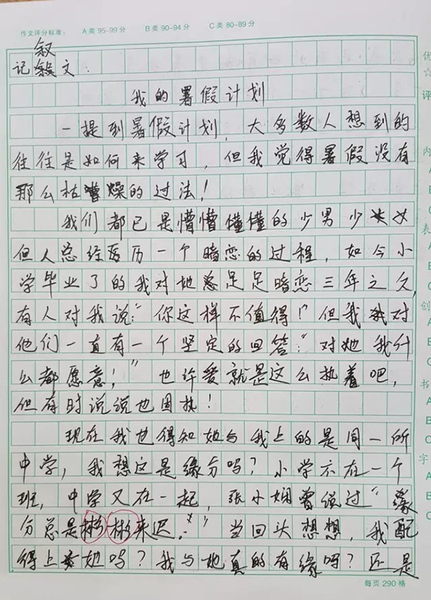 作文评分标准： A类 95-99分 B类 90-94分 C类 80-89分
叙
记文：
我的暑假计划
一提到暑假计划，大多数人想到的
往往是如何来学习，但我觉得暑假没有
那么枯燥的过法！
我们都已是懵懵懂懂的少男少女
但人总经历一个暗恋的过程，如今小
学毕业了的我对她足足暗恋三年之久，
有人对我说："你这样不值得！"但我对
他们一直有一个坚定的回答："对她我什
么都愿意！"也许爱就是这么执着吧，
但有时说说也固执！
现在我也得知她与我上的是同一所
中学，我想这是缘分吗？小学不在一个
班，中学又在一起，张小娴曾经过"缘
分总是彬彬来迟。"当回头想想，我配
得上她吗？我与她真的有缘吗？还是
每页 290 格
优
☆
评
内
表
创
书
字